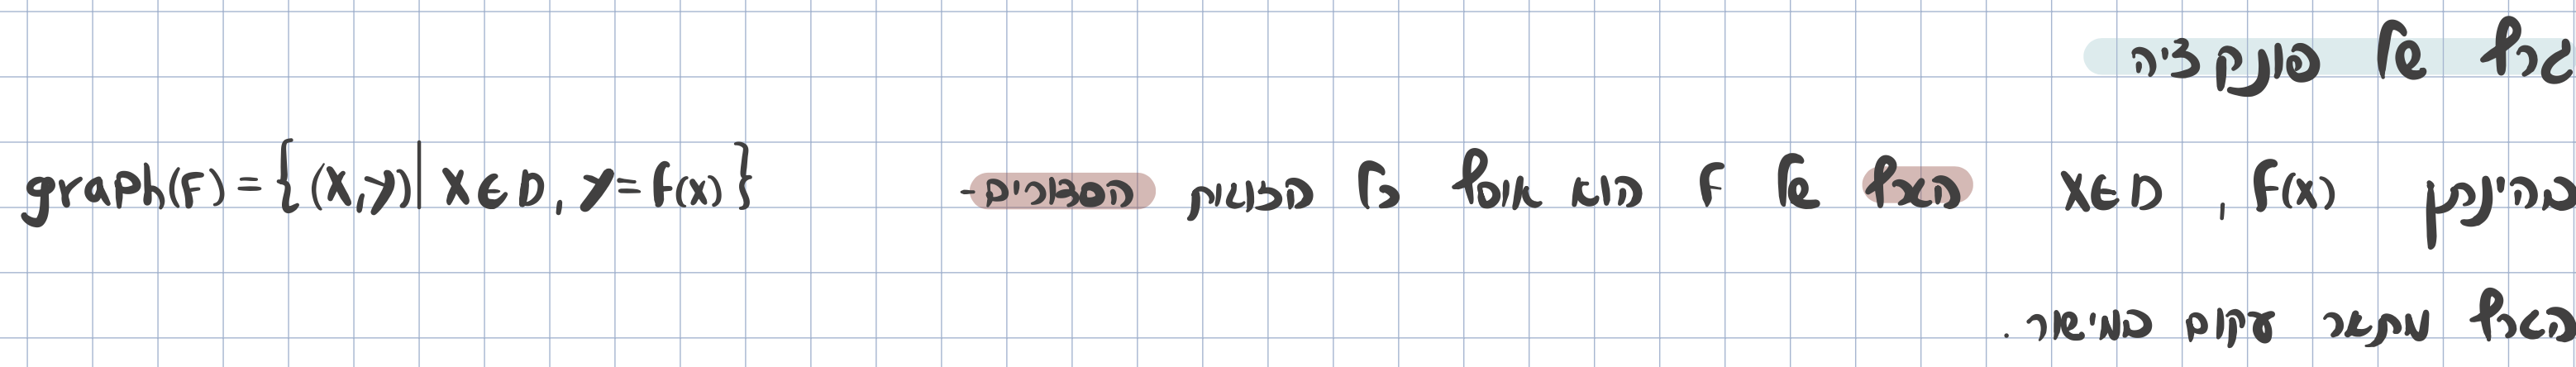 גרף של פונקציה
בהינתן f(x) , x∈D הגרף של f הוא אוסף כל הזוגות הסדורים- graph(f) = {(x,y)| x∈D, y=f(x)}
הגרף מתאר עקום במישור.